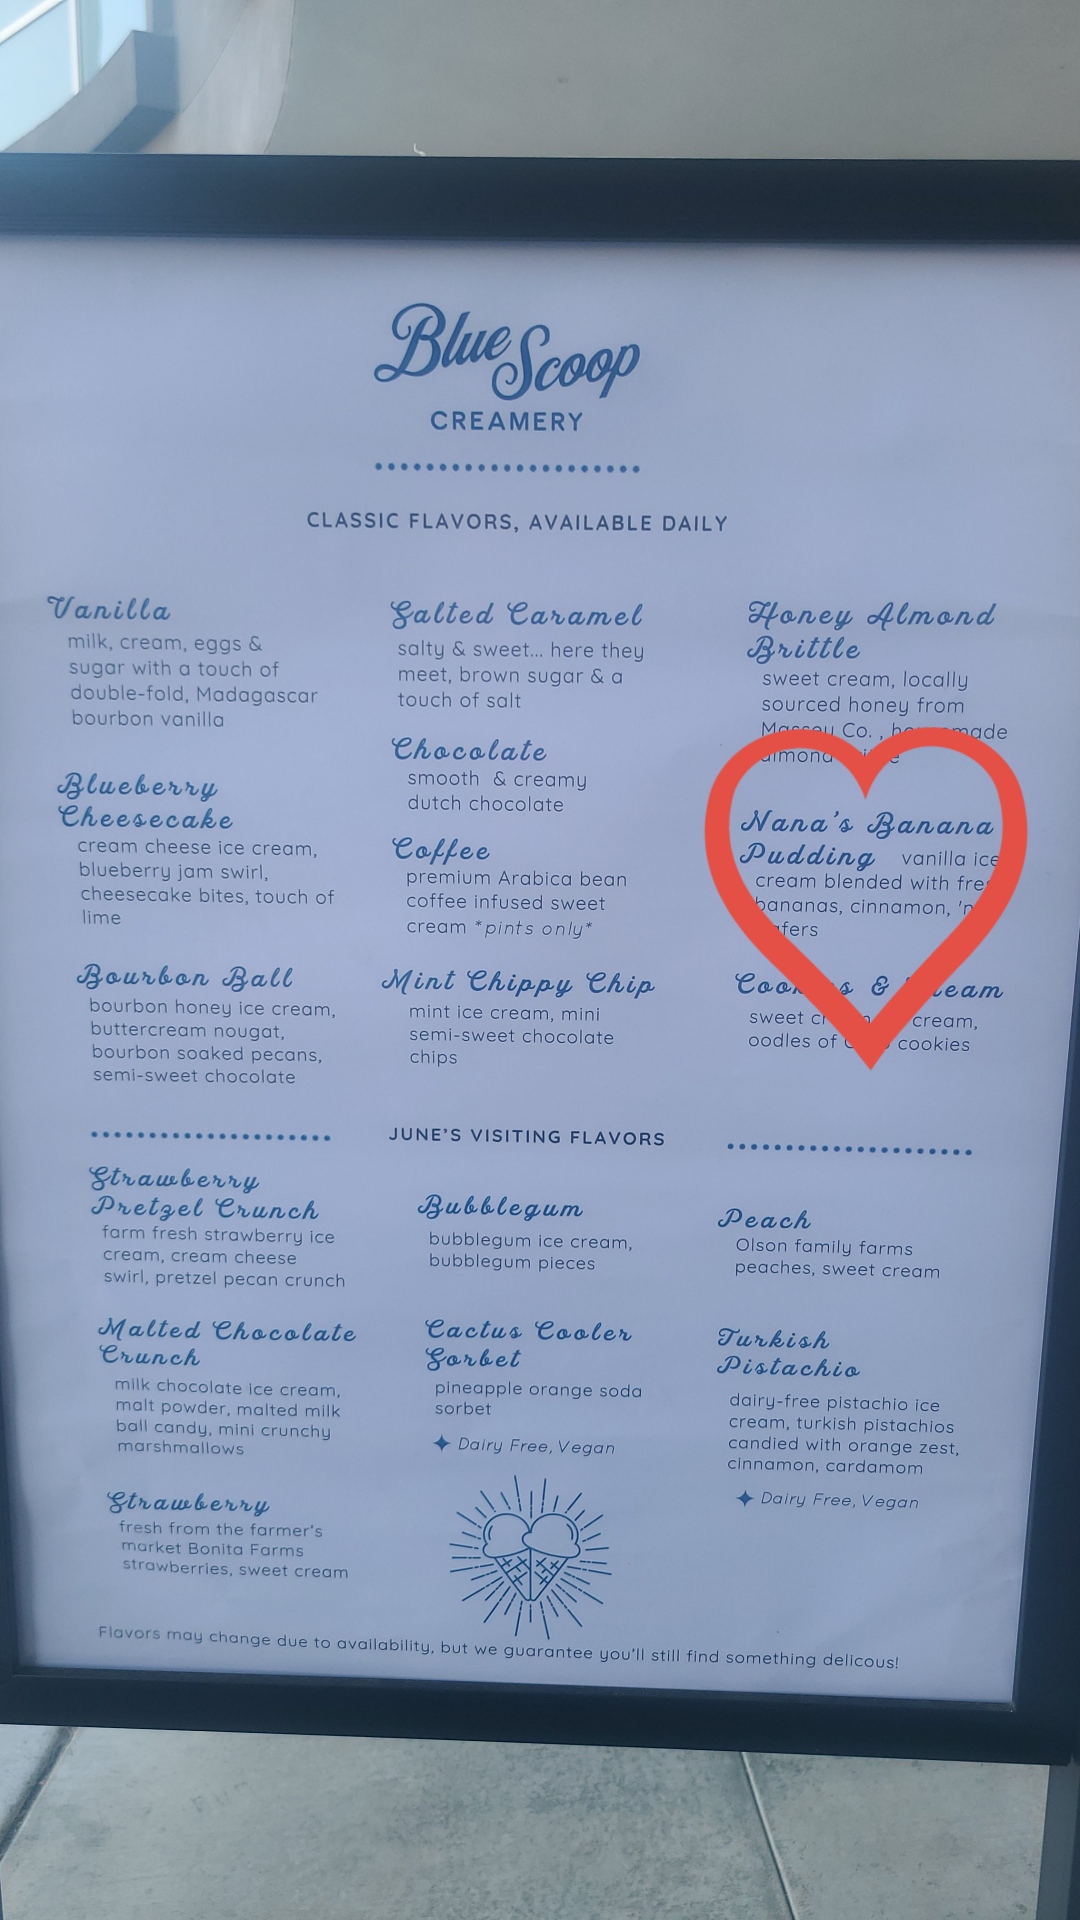 Blue Scoop
CREAMERY
CLASSIC FLAVORS, AVAILABLE DAILY
Vanilla
milk, cream, eggs &
sugar with a touch of
double-fold, Madagascar
bourbon vanilla
Blueberry
Cheesecake
cream cheese ice cream,
blueberry jam swirl,
cheesecake bites, touch of
lime
Bourbon Ball
bourbon honey ice cream,
buttercream nougat,
bourbon soaked pecans,
semi-sweet chocolate
Salted Caramel
salty & sweet... here they
meet, brown sugar & a
touch of salt
Chocolate
smooth & creamy
dutch chocolate
Coffee
premium Arabica bean
coffee infused sweet
cream *pints only*
Mint Chippy Chip
mint ice cream, mini
semi-sweet chocolate
chips
Honey Almond
Brittle
sweet cream, locally
sourced honey from
Massey Co. ,
almond
Nana's Banana
Pudding vanilla ice
cream blended with
bananas, cinnamon,
& 
sweet cream,
oodles of cookies
JUNE'S VISITING FLAVORS
Strawberry
Pretzel Crunch
farm fresh strawberry ice
cream, cream cheese
swirl, pretzel pecan crunch
Malted Chocolate
Crunch
milk chocolate ice cream,
malt powder, malted milk
ball candy, mini crunchy
marshmallows
Strawberry
fresh from the farmer's
market Bonita Farms
strawberries, sweet cream
Bubblegum
bubblegum ice cream,
bubblegum pieces
Cactus Cooler
Sorbet
pineapple orange soda
sorbet
Dairy Free, Vegan
Peach
Olson family farms
peaches, sweet cream
Turkish
Pistachio
dairy-free pistachio ice
cream, turkish pistachios
candied with orange zest,
cinnamon, cardamom
Dairy Free, Vegan
Flavors may change due to availability, but we guarantee you'll still find something delicous!